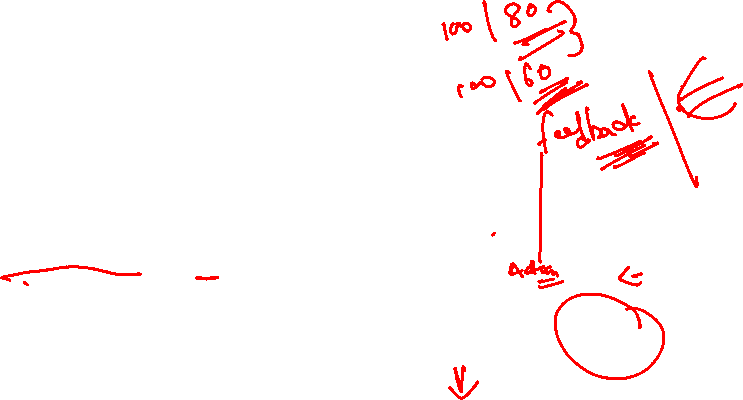 100 | 80
100 | 60
feedback
Action